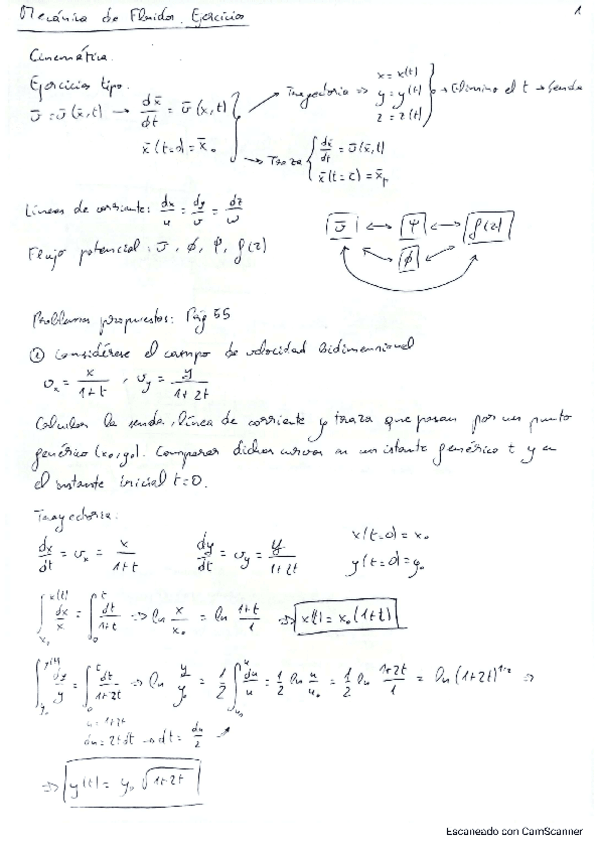 Mecánica de Fluidos. Ejercicios 1
Cinemática.
Ejercicios tipo.
v̄ = v̄(x̄,t) → dx̄/dt = v̄(x,t) → Trayectoria ⇒ x = x(t) y = y(t) z = z(t) → Elimino el t → Senda
x̄(t=0) = x̄₀ → Traza { dx̄/dt = v̄(x̄,t) x̄(t=c) = x̄p
Líneas de corriente: dx/u = dy/v = dz/w
Flujo potencial: v̄, ϕ, Ψ, f(z)
v̄ ↔ Ψ ↔ f(z)
ϕ
Problemas propuestos: Pág 55
① Considérese el campo de velocidad bidimensional
vx = x/1+t , vy = y/1+2t
Calcular la senda, línea de corriente y traza que pasan por un punto
genérico (x₀,y₀). Comparar dichas curvas en un instante genérico t y en
el instante inicial t=0.
Trayectoria:
dx/dt = vx = x/1+t dy/dt = vy = y/1+2t x(t=0) = x₀
y(t=0) = y₀
∫x₀^x(t) dx/x = ∫0^t dt/1+t ⇒ ln x/x₀ = ln 1+t/1 ⇒ x(t) = x₀(1+t)
∫y₀^y(t) dy/y = ∫0^t dt/1+2t ⇒ ln y/y₀ = 1/2 ∫u₀^u du/u = 1/2 ln u/u₀ = 1/2 ln 1+2t/1 = ln (1+2t)^1/2 ⇒
u = 1+2t
du = 2dt → dt = du/2
⇒ y(t) = y₀ √1+2t
Escaneado con CamScanner